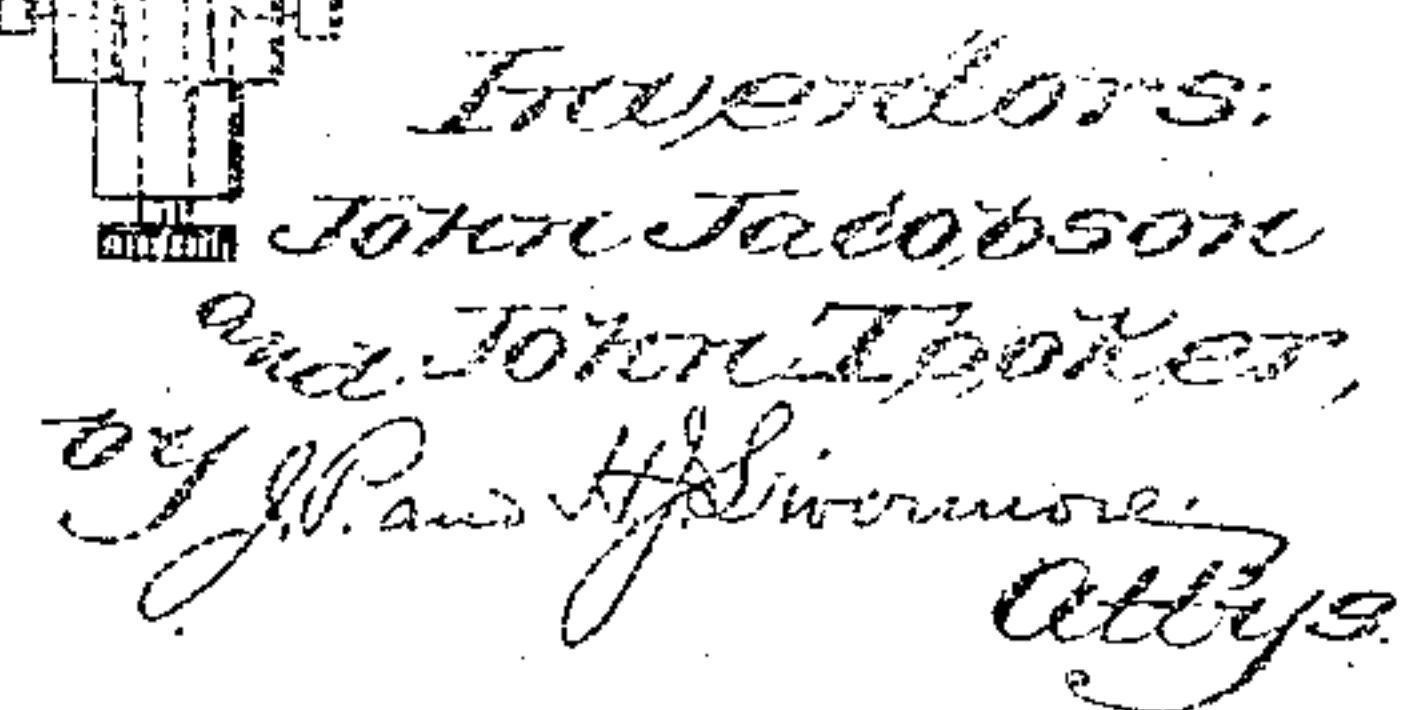 Inventors:
John Jacobson
and John Tooker,
by J. P. and H. J. Livermore.
Att'ys.